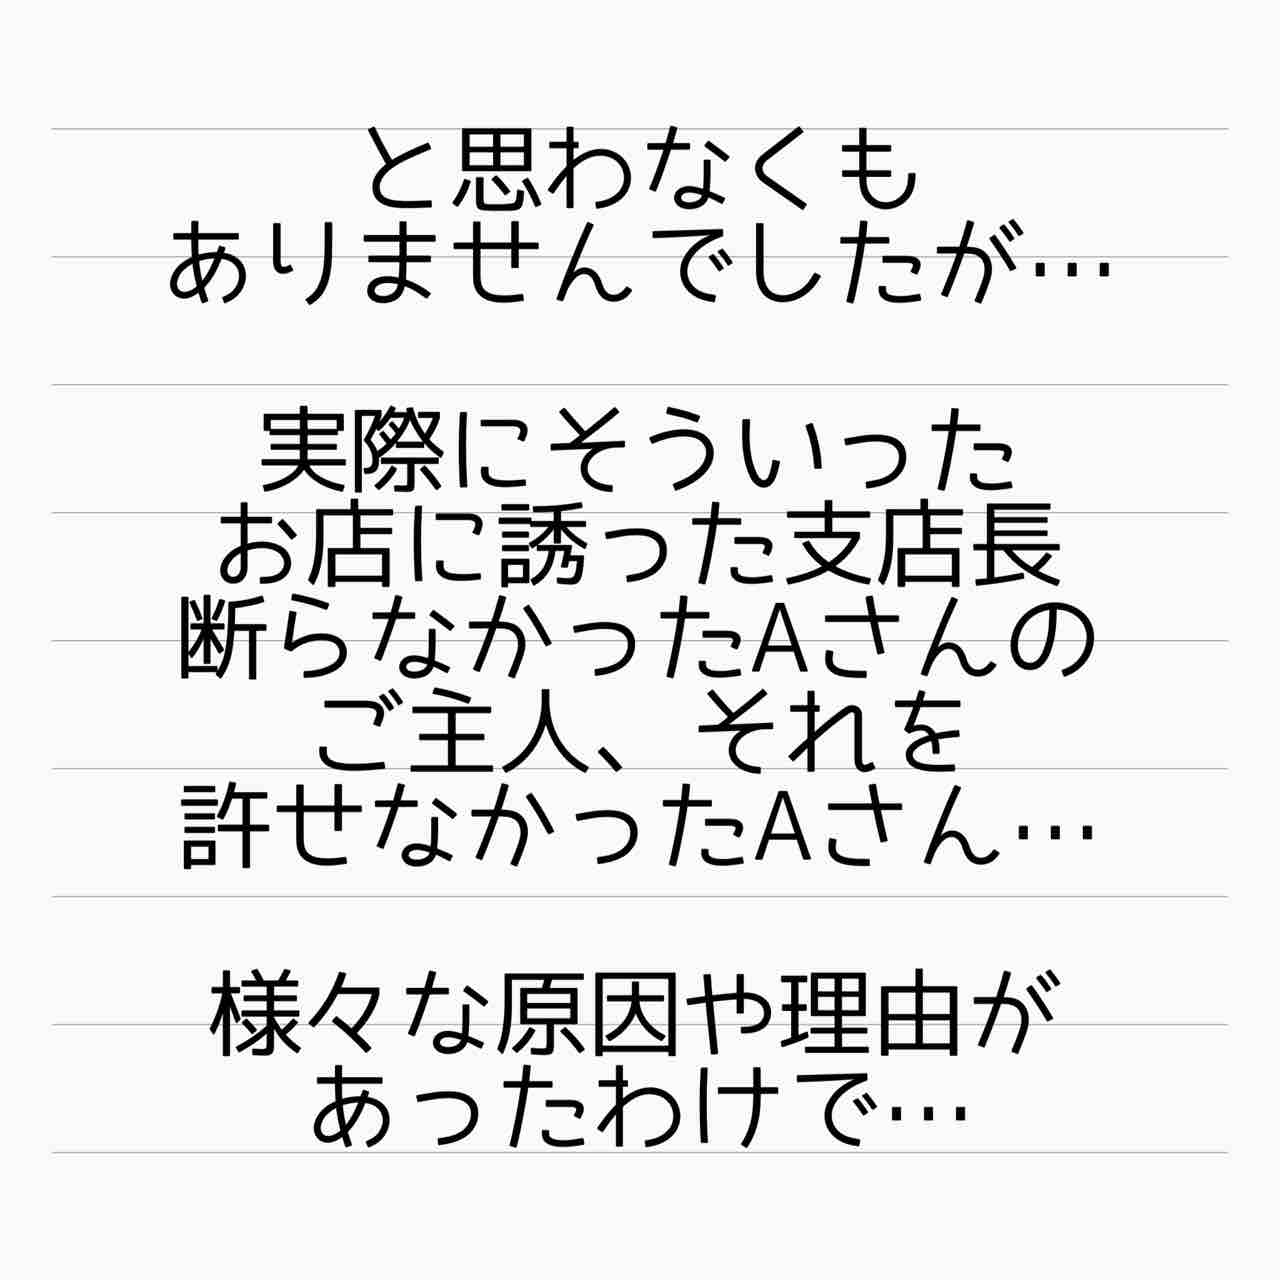 と思わなくも
ありませんでしたが…
実際にそういった
お店に誘った支店長
断らなかったAさんの
ご主人、それを
許せなかったAさん…
様々な原因や理由が
あったわけで…